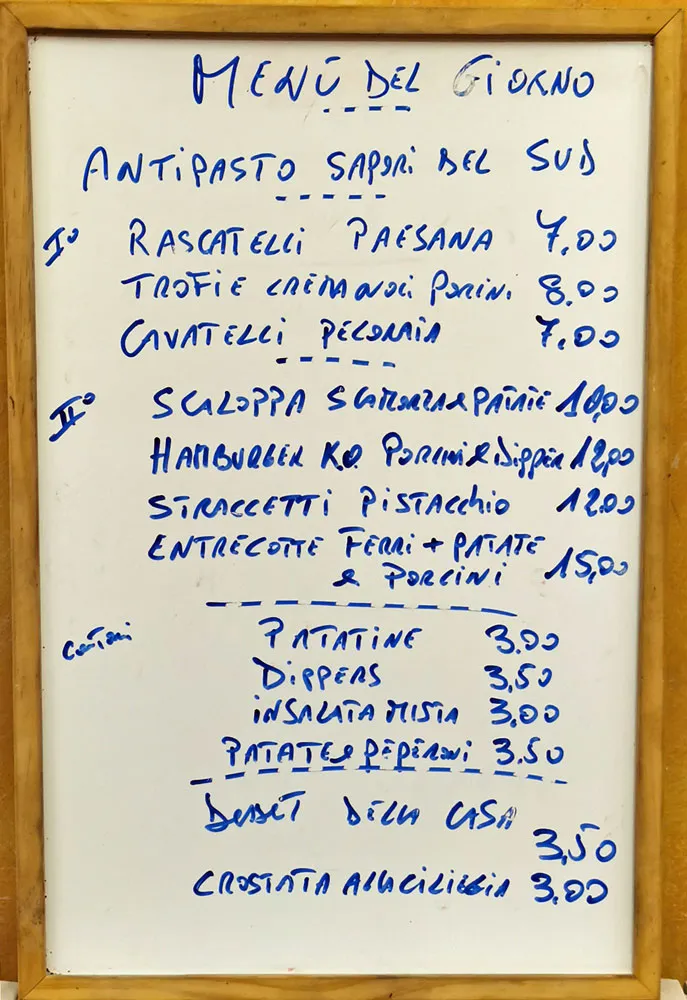 MENÙ DEL GIORNO
ANTIPASTO SAPORI DEL SUD
I° RASCATELLI PAESANA 7,00
TROFIE CREMA NOCI PORCINI 8.00
CAVATELLI PECORAIA 7,00
II° SCALOPPA SCAMORZA e PATATE 10,00
HAMBURGER KO PORCINI e Dipper 12,00
STRACCETTI PISTACCHIO 12.00
ENTRECOTTE FERRI + PATATE
e PORCINI 15,00
Contorni PATATINE 3.00
DIPPERS 3,50
INSALATA MISTA 3,00
PATATE e PEPERONI 3.50
DESSERT DELLA CASA
3,50
CROSTATA ALLA CILIEGIA 3,00